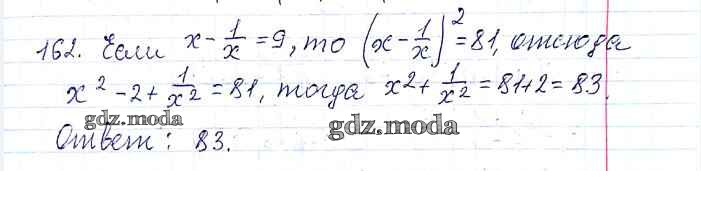 162. Если x - 1/x = 9, то (x - 1/x)² = 81, отсюда
x² - 2 + 1/x² = 81, тогда x² + 1/x² = 81+2 = 83.
gdz.moda gdz.moda
Ответ: 83.